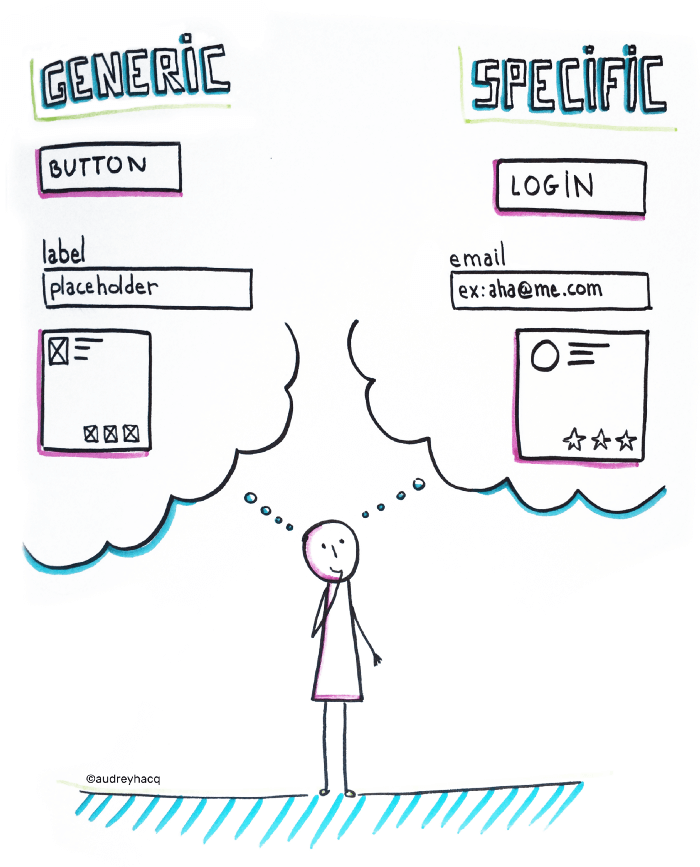 GENERIC
BUTTON
label
placeholder
SPECIFIC
LOGIN
email
ex:aha@me.com
©audreyhacq